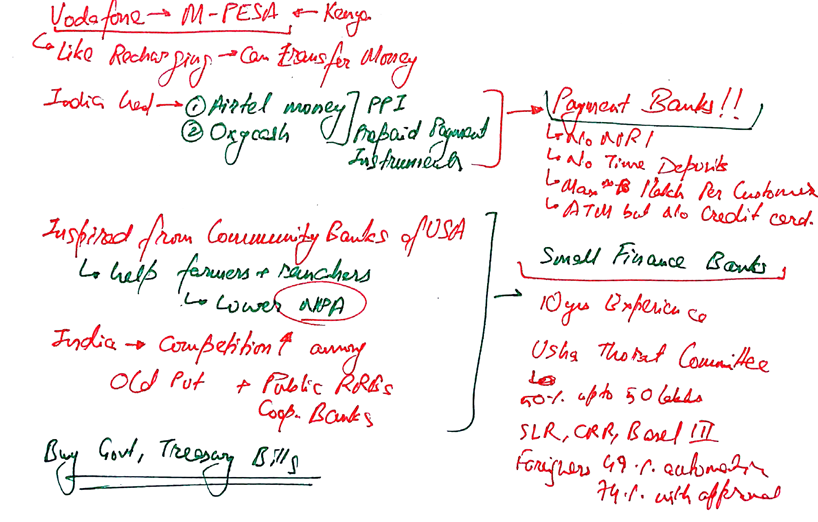 Vodafone → M-PESA ← Kenya
↳ Like Recharging → Can transfer Money
India had → ① Airtel money
② Oxycash
PPI
Prepaid Payment
Instruments
→ Payment Banks!!
↳ No NRI
↳ No Time Deposits
↳ Max 1 lakh Per Customer
↳ ATM but No Credit card.
Inspired from Community Banks of USA
↳ help farmers + ranchers
↳ Lower NPA
India → Competition ↑ among
Old Pvt + Public RRBs
Coop. Banks
→ Small Finance Banks
10 yrs Experience
Usha Thorat Committee
50% upto 50 lakhs
SLR, CRR, Basel III
Foreigners 49% automatic
74% with approval
Buy Govt, Treasury Bills